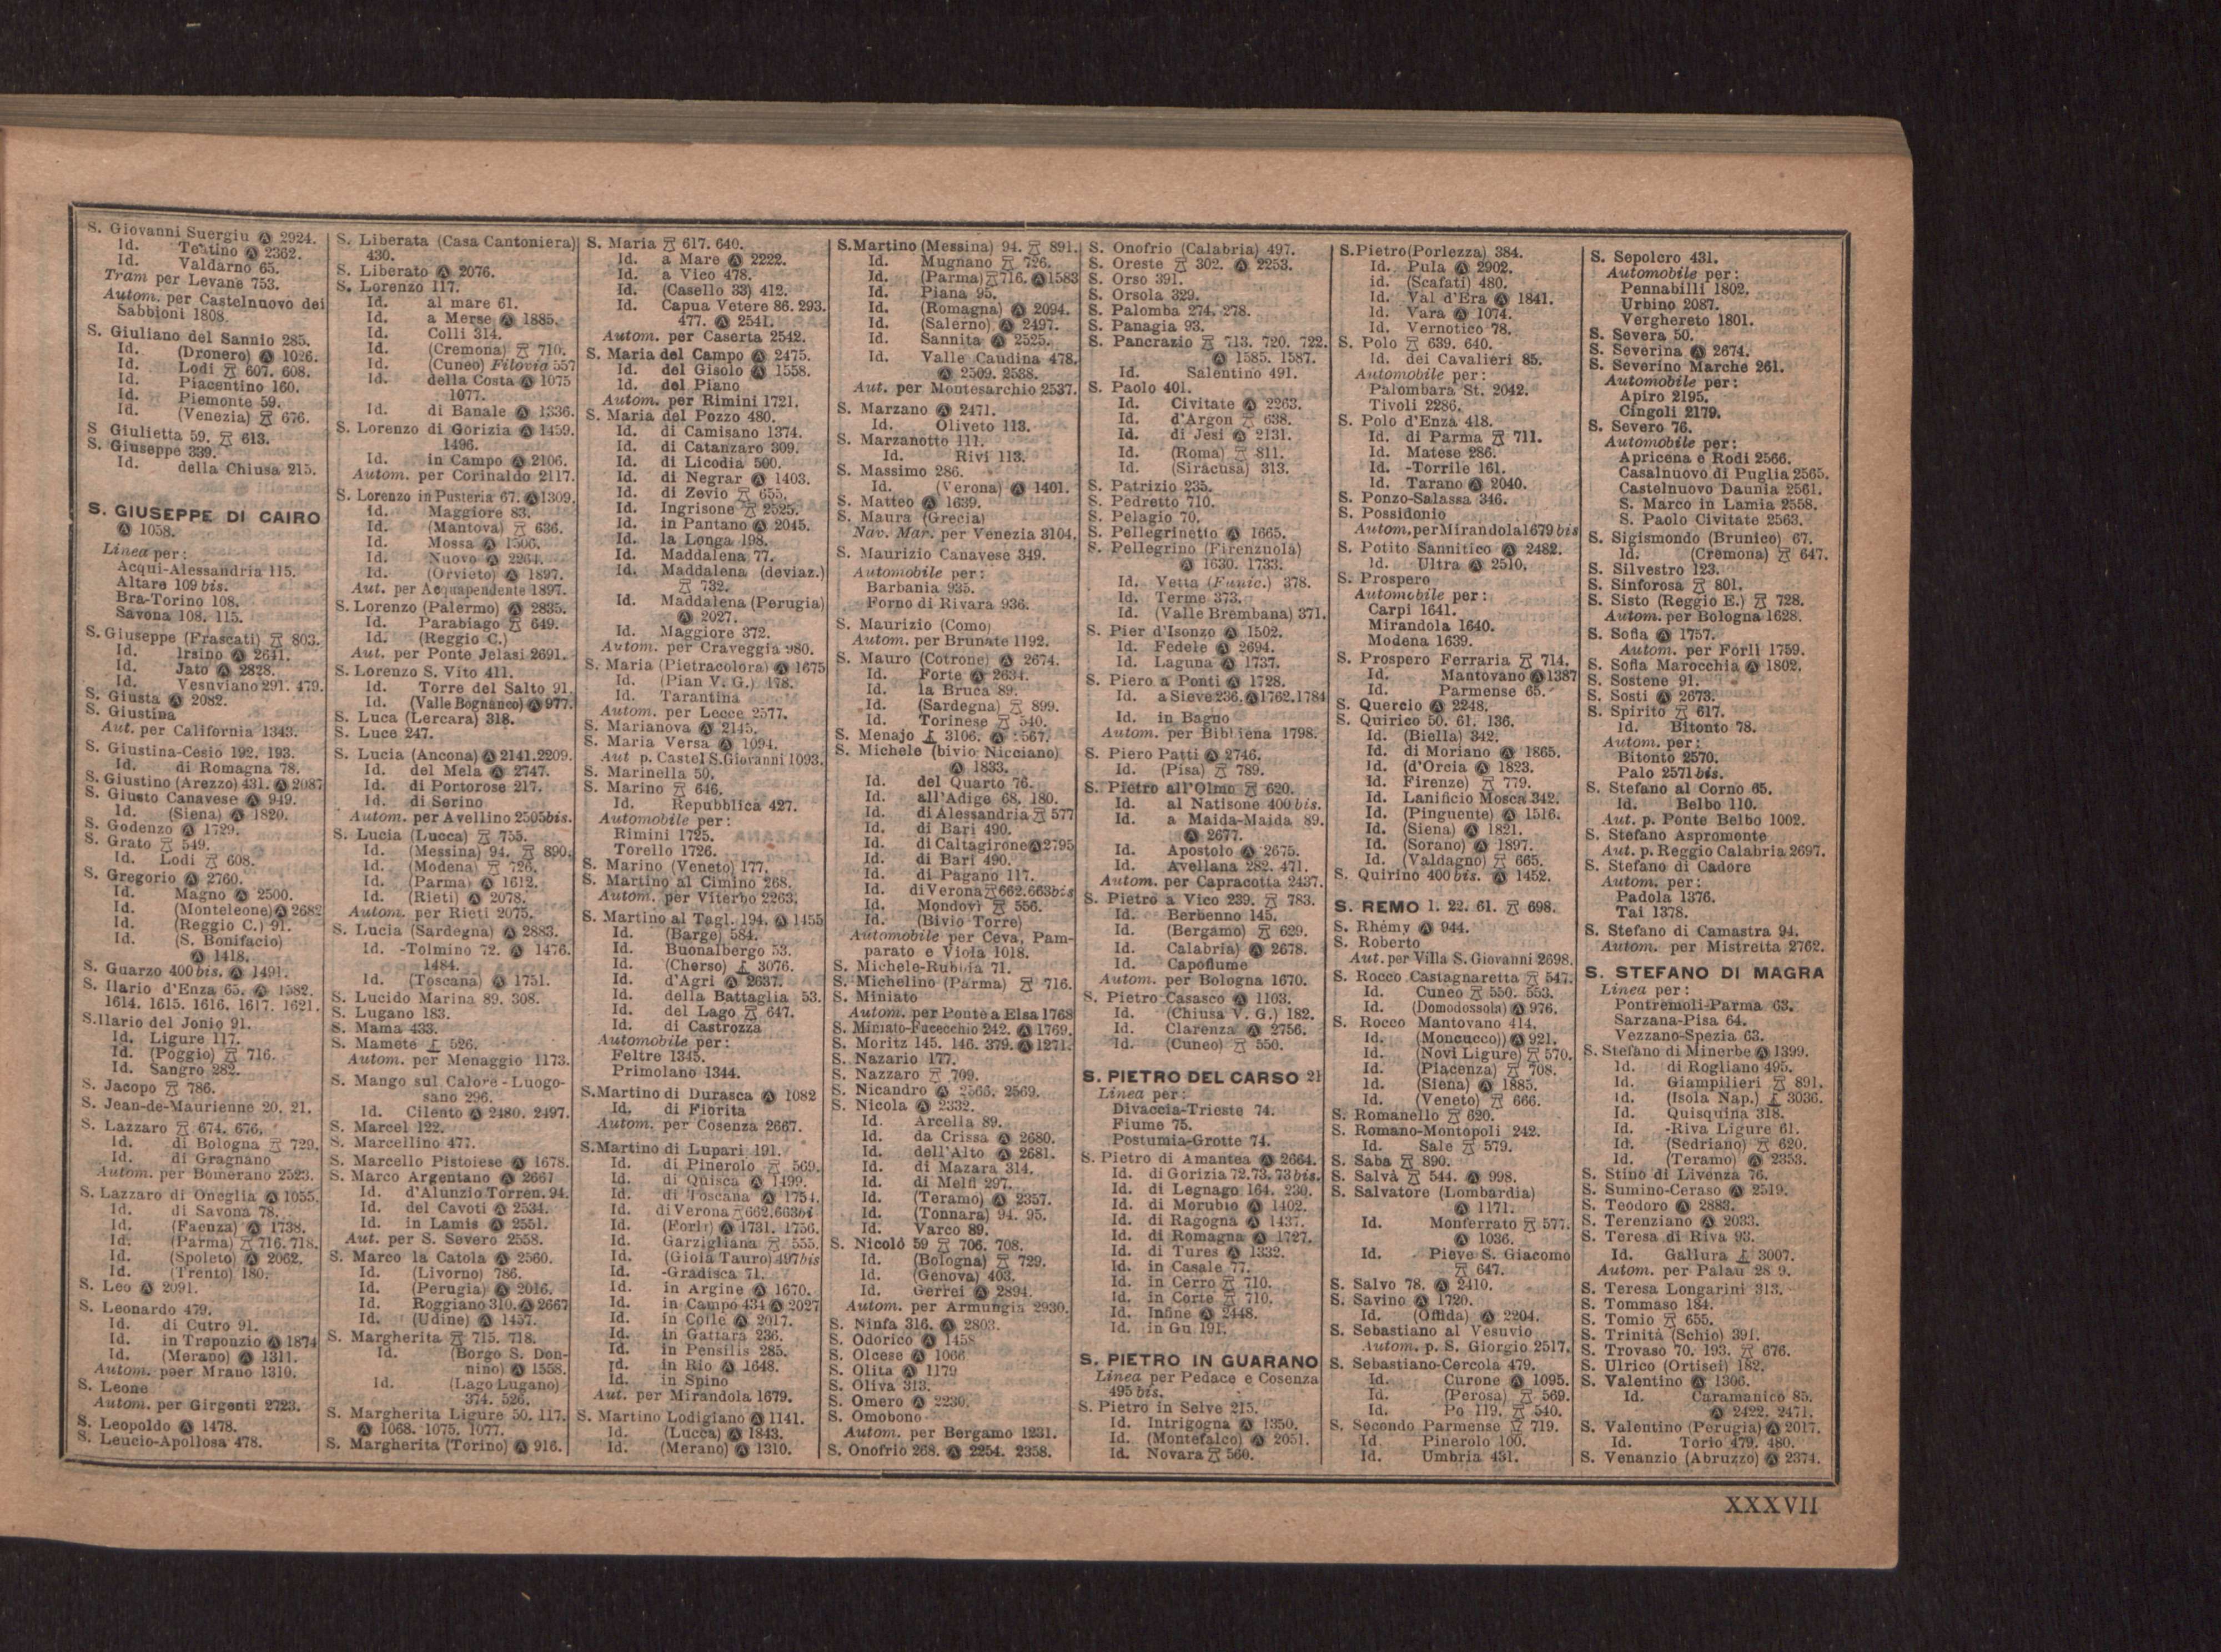 S. Giovanni Suergiu Ⓐ 2924.
Id. Teatino Ⓐ 2362.
Id. Valdarno 65.
Tram per Levane 753.
Autom. per Castelnuovo dei
Sabbioni 1808.
S. Giuliano del Sannio 285.
Id. (Dronero) Ⓐ 1026.
Id. Lodi 607. 608.
Id. Piacentino 160.
Id. Piemonte 59.
Id. (Venezia) 676.
S Giulietta 59. 613.
S. Giuseppe 339.
Id. della Chiusa 215.
S. GIUSEPPE DI CAIRO
Ⓐ 1058.
Linea per:
Acqui-Alessandria 115.
Altare 109 bis.
Bra-Torino 108.
Savona 108. 115.
S. Giuseppe (Frascati) 803.
Id. Irsino Ⓐ 2641.
Id. Jato Ⓐ 2828.
Id. Vesuviano 291. 479.
S. Giusta Ⓐ 2082.
S. Giustina
Aut. per California 1343.
S. Giustina-Cesio 192. 193.
Id. di Romagna 78.
S. Giustino (Arezzo) 431. Ⓐ 2087
S. Giusto Canavese Ⓐ 949.
Id. (Siena) Ⓐ 1820.
S. Godenzo Ⓐ 1729.
S. Grato 549.
Id. Lodi 608.
S. Gregorio Ⓐ 2760.
Id. Magno Ⓐ 2500.
Id. (Monteleone) Ⓐ 2682
Id. (Reggio C.) 91.
Id. (S. Bonifacio)
Ⓐ 1418.
S. Guarzo 400 bis. Ⓐ 1491.
S. Ilario d'Enza 65. Ⓐ 1582.
1614. 1615. 1616. 1617. 1621.
S. Ilario del Jonio 91.
Id. Ligure 117.
Id. (Poggio) 716.
Id. Sangro 282.
S. Jacopo 786.
S. Jean-de-Maurienne 20. 21.
S. Lazzaro 674. 676.
Id. di Bologna 729.
Id. di Gragnano
Autom. per Bomerano 2523.
S. Lazzaro di Oneglia Ⓐ 1055.
Id. di Savona 78.
Id. (Faenza) Ⓐ 1738.
Id. (Parma) 716. 718.
Id. (Spoleto) Ⓐ 2062.
Id. (Trento) 180.
S. Leo Ⓐ 2091.
S. Leonardo 479.
Id. di Cutro 91.
Id. in Treponzio Ⓐ 1874
Id. (Merano) Ⓐ 1311.
Autom. peer Mrano 1310.
S. Leone
Autom. per Girgenti 2723.
S. Leopoldo Ⓐ 1478.
S. Leucio-Apollosa 478.
S. Liberata (Casa Cantoniera)
430.
S. Liberato Ⓐ 2076.
S. Lorenzo 117.
Id. al mare 61.
Id. a Merse Ⓐ 1885.
Id. Colli 314.
Id. (Cremona) 710.
Id. (Cuneo) Filovia 557
Id. della Costa Ⓐ 1075
1077.
Id. di Banale Ⓐ 1336.
S. Lorenzo di Gorizia Ⓐ 1459.
1496.
Id. in Campo Ⓐ 2106.
Autom. per Corinaldo 2117.
S. Lorenzo in Pusteria 67. Ⓐ 1309.
Id. Maggiore 83.
Id. (Mantova) 636.
Id. Mossa Ⓐ 1506.
Id. Nuovo Ⓐ 2264.
Id. (Orvieto) Ⓐ 1897.
Aut. per Acquapendente 1897.
S. Lorenzo (Palermo) Ⓐ 2835.
Id. Parabiago 649.
Id. (Reggio C.)
Aut. per Ponte Jelasi 2691.
S. Lorenzo S. Vito 411.
Id. Torre del Salto 91.
Id. (Valle Bognanco) Ⓐ 977.
S. Luca (Lercara) 318.
S. Luce 247.
S. Lucia (Ancona) Ⓐ 2141.2209.
Id. del Mela Ⓐ 2747.
Id. di Portorose 217.
Id. di Serino
Autom. per Avellino 2505bis.
S. Lucia (Lucca) 755.
Id. (Messina) 94. 890.
Id. (Modena) 726.
Id. (Parma) Ⓐ 1612.
Id. (Rieti) Ⓐ 2078.
Autom. per Rieti 2075.
S. Lucia (Sardegna) Ⓐ 2883.
Id. -Tolmino 72. Ⓐ 1476.
1484.
Id. (Toscana) Ⓐ 1751.
S. Lucido Marina 89. 308.
S. Lugano 183.
S. Mama 433.
S. Mamete 526.
Autom. per Menaggio 1173.
S. Mango sul Calore - Luogo-
sano 296.
Id. Cilento Ⓐ 2480. 2497.
S. Marcel 122.
S. Marcellino 477.
S. Marcello Pistoiese Ⓐ 1678.
S. Marco Argentano Ⓐ 2667
Id. d'Alunzio Torren. 94.
Id. del Cavoti Ⓐ 2534.
Id. in Lamis Ⓐ 2551.
Aut. per S. Severo 2558.
S. Marco la Catola Ⓐ 2560.
Id. (Livorno) 786.
Id. (Perugia) Ⓐ 2016.
Id. Roggiano 310. Ⓐ 2667
Id. (Udine) Ⓐ 1457.
S. Margherita 715. 718.
Id. (Borgo S. Don-
nino) Ⓐ 1558.
Id. (Lago Lugano)
374. 526.
S. Margherita Ligure 50. 117.
Ⓐ 1068. 1075. 1077.
S. Margherita (Torino) Ⓐ 916.
S. Maria 617. 640.
Id. a Mare Ⓐ 2222.
Id. a Vico 478.
Id. (Casello 33) 412.
Id. Capua Vetere 86. 293.
477. Ⓐ 2541.
Autom. per Caserta 2542.
S. Maria del Campo Ⓐ 2475.
Id. del Gisolo Ⓐ 1558.
Id. del Piano
Autom. per Rimini 1721.
S. Maria del Pozzo 480.
Id. di Camisano 1374.
Id. di Catanzaro 309.
Id. di Licodia 500.
Id. di Negrar Ⓐ 1403.
Id. di Zevio 655.
Id. Ingrisone 2525.
Id. in Pantano Ⓐ 2045.
Id. la Longa 198.
Id. Maddalena 77.
Id. Maddalena (deviaz.)
732.
Id. Maddalena (Perugia)
Ⓐ 2027.
Id. Maggiore 372.
Autom. per Craveggia 980.
S. Maria (Pietracolora) Ⓐ 1675
Id. (Pian V. G.) 178.
Id. Tarantina
Autom. per Lecce 2577.
S. Marianova Ⓐ 2145.
S. Maria Versa Ⓐ 1094.
Aut p. Castel S.Giovanni 1093.
S. Marinella 50.
S. Marino 646.
Id. Repubblica 427.
Automobile per:
Rimini 1725.
Torello 1726.
S. Marino (Veneto) 177.
S. Martino al Cimino 268.
Autom. per Viterbo 2263.
S. Martino al Tagl. 194. Ⓐ 1455
Id. (Barge) 584.
Id. Buonalbergo 53.
Id. (Cherso) 3076.
Id. d'Agri Ⓐ 2637.
Id. della Battaglia 53.
Id. del Lago 647.
Id. di Castrozza
Automobile per:
Feltre 1345.
Primolano 1344.
S.Martino di Durasca Ⓐ 1082
Id. di Fiorita
Autom. per Cosenza 2667.
S.Martino di Lupari 191.
Id. di Pinerolo 569.
Id. di Quisca Ⓐ 1499.
Id. di Toscana Ⓐ 1754.
Id. di Verona 662.663bi
Id. (Forlì) Ⓐ 1731. 1756.
Id. Garzigliana 555.
Id. (Gioia Tauro) 497bis
Id. -Gradisca 71.
Id. in Argine Ⓐ 1670.
Id. in Campo 434 Ⓐ 2027
Id. in Colle Ⓐ 2017.
Id. in Gattara 236.
Id. in Pensilis 285.
Id. in Rio Ⓐ 1648.
Id. in Spino
Aut. per Mirandola 1679.
S. Martino Lodigiano Ⓐ 1141.
Id. (Lucca) Ⓐ 1843.
Id. (Merano) Ⓐ 1310.
S.Martino (Messina) 94. 891.
Id. Mugnano 726.
Id. (Parma) 716. Ⓐ 1583
Id. Piana 95.
Id. (Romagna) Ⓐ 2094.
Id. (Salerno) Ⓐ 2497.
Id. Sannita Ⓐ 2525.
Id. Valle Caudina 478.
Ⓐ 2509. 2538.
Aut. per Montesarchio 2537.
S. Marzano Ⓐ 2471.
Id. Oliveto 113.
S. Marzanotto 111.
Id. Rivi 113.
S. Massimo 286.
Id. (Verona) Ⓐ 1401.
S. Matteo Ⓐ 1639.
S. Maura (Grecia)
Nav. Mar. per Venezia 3104.
S. Maurizio Canavese 349.
Automobile per:
Barbania 935.
Forno di Rivara 936.
S. Maurizio (Como)
Autom. per Brunate 1192.
S. Mauro (Cotrone) Ⓐ 2674.
Id. Forte Ⓐ 2634.
Id. la Bruca 89.
Id. (Sardegna) 899.
Id. Torinese 540.
S. Menajo 3106. Ⓐ 567.
S. Michele (bivio Nicciano)
Ⓐ 1833.
Id. del Quarto 76.
Id. all'Adige 68. 180.
Id. di Alessandria 577
Id. di Bari 490.
Id. di Caltagirone Ⓐ 2795
Id. di Bari 490.
Id. di Pagano 117.
Id. di Verona 662.663bis
Id. Mondovì 556.
Id. (Bivio Torre)
Automobile per Ceva, Pam-
parato e Viola 1018.
S. Michele-Rubbia 71.
S. Michelino (Parma) 716.
S. Miniato
Autom. per Ponte a Elsa 1768
S. Miniato-Fucecchio 242. Ⓐ 1769.
S. Moritz 145. 146. 379. Ⓐ 1271.
S. Nazario 177.
S. Nazzaro 709.
S. Nicandro Ⓐ 2566. 2569.
S. Nicola Ⓐ 2332.
Id. Arcella 89.
Id. da Crissa Ⓐ 2680.
Id. dell'Alto Ⓐ 2681.
Id. di Mazara 314.
Id. di Melfi 297.
Id. (Teramo) Ⓐ 2357.
Id. (Tonnara) 94. 95.
Id. Varco 89.
S. Nicolò 59 706. 708.
Id. (Bologna) 729.
Id. (Genova) 403.
Id. Gerrei Ⓐ 2894.
Autom. per Armungia 2930.
S. Ninfa 316. Ⓐ 2803.
S. Odorico Ⓐ 1458
S. Olcese Ⓐ 1066
S. Olita Ⓐ 1179
S. Oliva 313.
S. Omero Ⓐ 2230.
S. Omobono
Autom. per Bergamo 1231.
S. Onofrio 268. Ⓐ 2254. 2358.
S. Onofrio (Calabria) 497.
S. Oreste 302. Ⓐ 2253.
S. Orso 391.
S. Orsola 329.
S. Palomba 274. 278.
S. Panagia 93.
S. Pancrazio 713. 720. 722.
Ⓐ 1585. 1587.
Id. Salentino 491.
S. Paolo 401.
Id. Civitate Ⓐ 2263.
Id. d'Argon 638.
Id. di Jesi Ⓐ 2131.
Id. (Roma) 811.
Id. (Siracusa) 313.
S. Patrizio 235.
S. Pedretto 710.
S. Pelagio 70.
S. Pellegrinetto Ⓐ 1665.
S. Pellegrino (Firenzuola)
Ⓐ 1630. 1733.
Id. Vetta (Funic.) 378.
Id. Terme 373.
Id. (Valle Brembana) 371.
S. Pier d'Isonzo Ⓐ 1502.
Id. Fedele Ⓐ 2694.
Id. Laguna Ⓐ 1737.
S. Piero a Ponti Ⓐ 1728.
Id. a Sieve 236. Ⓐ 1762.1784
Id. in Bagno
Autom. per Bibbiena 1798.
S. Piero Patti Ⓐ 2746.
Id. (Pisa) 789.
S. Pietro all'Olmo 620.
Id. al Natisone 400 bis.
Id. a Maida-Maida 89.
Ⓐ 2677.
Id. Apostolo Ⓐ 2675.
Id. Avellana 282. 471.
Autom. per Capracotta 2437.
S. Pietro a Vico 239. 783.
Id. Berbenno 145.
Id. (Bergamo) 629.
Id. Calabria) Ⓐ 2678.
Id. Capofiume
Autom. per Bologna 1670.
S. Pietro Casasco Ⓐ 1103.
Id. (Chiusa V. G.) 182.
Id. Clarenza Ⓐ 2756.
Id. (Cuneo) 550.
S. PIETRO DEL CARSO 21
Linea per:
Divaccia-Trieste 74.
Fiume 75.
Postumia-Grotte 74.
S. Pietro di Amantea Ⓐ 2664.
Id. di Gorizia 72.73. 73bis.
Id. di Legnago 164. 230.
Id. di Morubio Ⓐ 1402.
Id. di Ragogna Ⓐ 1437.
Id. di Romagna Ⓐ 1727.
Id. di Tures Ⓐ 1332.
Id. in Casale 77.
Id. in Cerro 710.
Id. in Corte 710.
Id. Infine Ⓐ 2448.
Id. in Gu 191.
S. PIETRO IN GUARANO
Linea per Pedace e Cosenza
495 bis.
S. Pietro in Selve 215.
Id. Intrigogna Ⓐ 1350.
Id. (Montefalco) Ⓐ 2051.
Id. Novara 560.
S.Pietro(Porlezza) 384.
Id. Pula Ⓐ 2902.
id. (Scafati) 480.
Id. Val d'Era Ⓐ 1841.
Id. Vara Ⓐ 1074.
Id. Vernotico 78.
S. Polo 639. 640.
Id. dei Cavalieri 85.
Automobile per:
Palombara St. 2042.
Tivoli 2286.
S. Polo d'Enza 418.
Id. di Parma 711.
Id. Matese 286.
Id. -Torrile 161.
Id. Tarano Ⓐ 2040.
S. Ponzo-Salassa 346.
S. Possidonio
Autom.per Mirandola 1679 bis
S. Potito Sannitico Ⓐ 2482.
Id. Ultra Ⓐ 2510.
S. Prospero
Automobile per:
Carpi 1641.
Mirandola 1640.
Modena 1639.
S. Prospero Ferraria 714.
Id. Mantovano Ⓐ 1387
Id. Parmense 65.
S. Quercio Ⓐ 2248.
S. Quirico 50. 61. 136.
Id. (Biella) 342.
Id. di Moriano Ⓐ 1865.
Id. (d'Orcia Ⓐ 1823.
Id. Firenze) 779.
Id. Lanificio Mosca 342.
Id. (Pinguente) Ⓐ 1516.
Id. (Siena) Ⓐ 1821.
Id. (Sorano) Ⓐ 1897.
Id. (Valdagno) 665.
S. Quirino 400 bis. Ⓐ 1452.
S. REMO 1. 22. 61. 698.
S. Rhémy Ⓐ 944.
S. Roberto
Aut. per Villa S. Giovanni 2698.
S. Rocco Castagnaretta 547.
Id. Cuneo 550. 553.
Id. (Domodossola) Ⓐ 976.
S. Rocco Mantovano 414.
Id. (Moncucco)) Ⓐ 921.
Id. (Novi Ligure) 570.
Id. (Piacenza) 708.
Id. (Siena) Ⓐ 1885.
Id. (Veneto) 666.
S. Romanello 620.
S. Romano-Montopoli 242.
Id. Sale 579.
S. Saba 890.
S. Salvà 544. Ⓐ 998.
S. Salvatore (Lombardia)
Ⓐ 1171.
Id. Monferrato 577.
Ⓐ 1036.
Id. Pieve S. Giacomo
647.
S. Salvo 78. Ⓐ 2410.
S. Savino Ⓐ 1720.
Id. (Offida) Ⓐ 2204.
S. Sebastiano al Vesuvio
Autom. p. S. Giorgio 2517.
S. Sebastiano-Cercola 479.
Id. Curone Ⓐ 1095.
Id. (Perosa) 569.
Id. Po 119. 540.
S. Secondo Parmense 719.
Id Pinerolo 100.
Id. Umbria 431.
S. Sepolcro 431.
Automobile per:
Pennabilli 1802.
Urbino 2087.
Verghereto 1801.
S. Severa 50.
S. Severina Ⓐ 2674.
S. Severino Marche 261.
Automobile per:
Apiro 2195.
Cingoli 2179.
S. Severo 76.
Automobile per:
Apricena e Rodi 2566.
Casalnuovo di Puglia 2565.
Castelnuovo Daunia 2561.
S. Marco in Lamia 2558.
S. Paolo Civitate 2563.
S. Sigismondo (Brunico) 67.
Id. (Cremona) 647.
S. Silvestro 123.
S. Sinforosa 801.
S. Sisto (Reggio E.) 728.
Autom. per Bologna 1628.
S. Sofia Ⓐ 1757.
Autom. per Forlì 1759.
S. Sofia Marocchia Ⓐ 1802.
S. Sostene 91.
S. Sosti Ⓐ 2673.
S. Spirito 617.
Id. Bitonto 78.
Autom. per:
Bitonto 2570.
Palo 2571bis.
S. Stefano al Corno 65.
Id. Belbo 110.
Aut. p. Ponte Belbo 1002.
S. Stefano Aspromonte
Aut. p. Reggio Calabria 2697.
S. Stefano di Cadore
Autom. per:
Padola 1376.
Tai 1378.
S. Stefano di Camastra 94.
Autom. per Mistretta 2762.
S. STEFANO DI MAGRA
Linea per:
Pontremoli-Parma 63.
Sarzana-Pisa 64.
Vezzano-Spezia 63.
S. Stefano di Minerbe Ⓐ 1399.
Id. di Rogliano 495.
Id. Giampilieri 891.
Id. (Isola Nap.) 3036.
Id. Quisquina 318.
Id. -Riva Ligure 61.
Id. (Sedriano) 620.
Id. (Teramo) Ⓐ 2353.
S. Stino di Livenza 76.
S. Sumino-Ceraso Ⓐ 2519.
S. Teodoro Ⓐ 2883.
S. Terenziano Ⓐ 2033.
S. Teresa di Riva 93.
Id. Gallura 3007.
Autom. per Palau 28 9.
S. Teresa Longarini 313.
S. Tommaso 184.
S. Tomio 655.
S. Trinità (Schio) 391.
S. Trovaso 70. 193. 676.
S. Ulrico (Ortisei) 182.
S. Valentino Ⓐ 1306.
Id. Caramanico 85.
Ⓐ 2422. 2471.
S. Valentino (Perugia) Ⓐ 2017.
Id. Torio 479. 480.
S. Venanzio (Abruzzo) Ⓐ 2374.
XXXVII